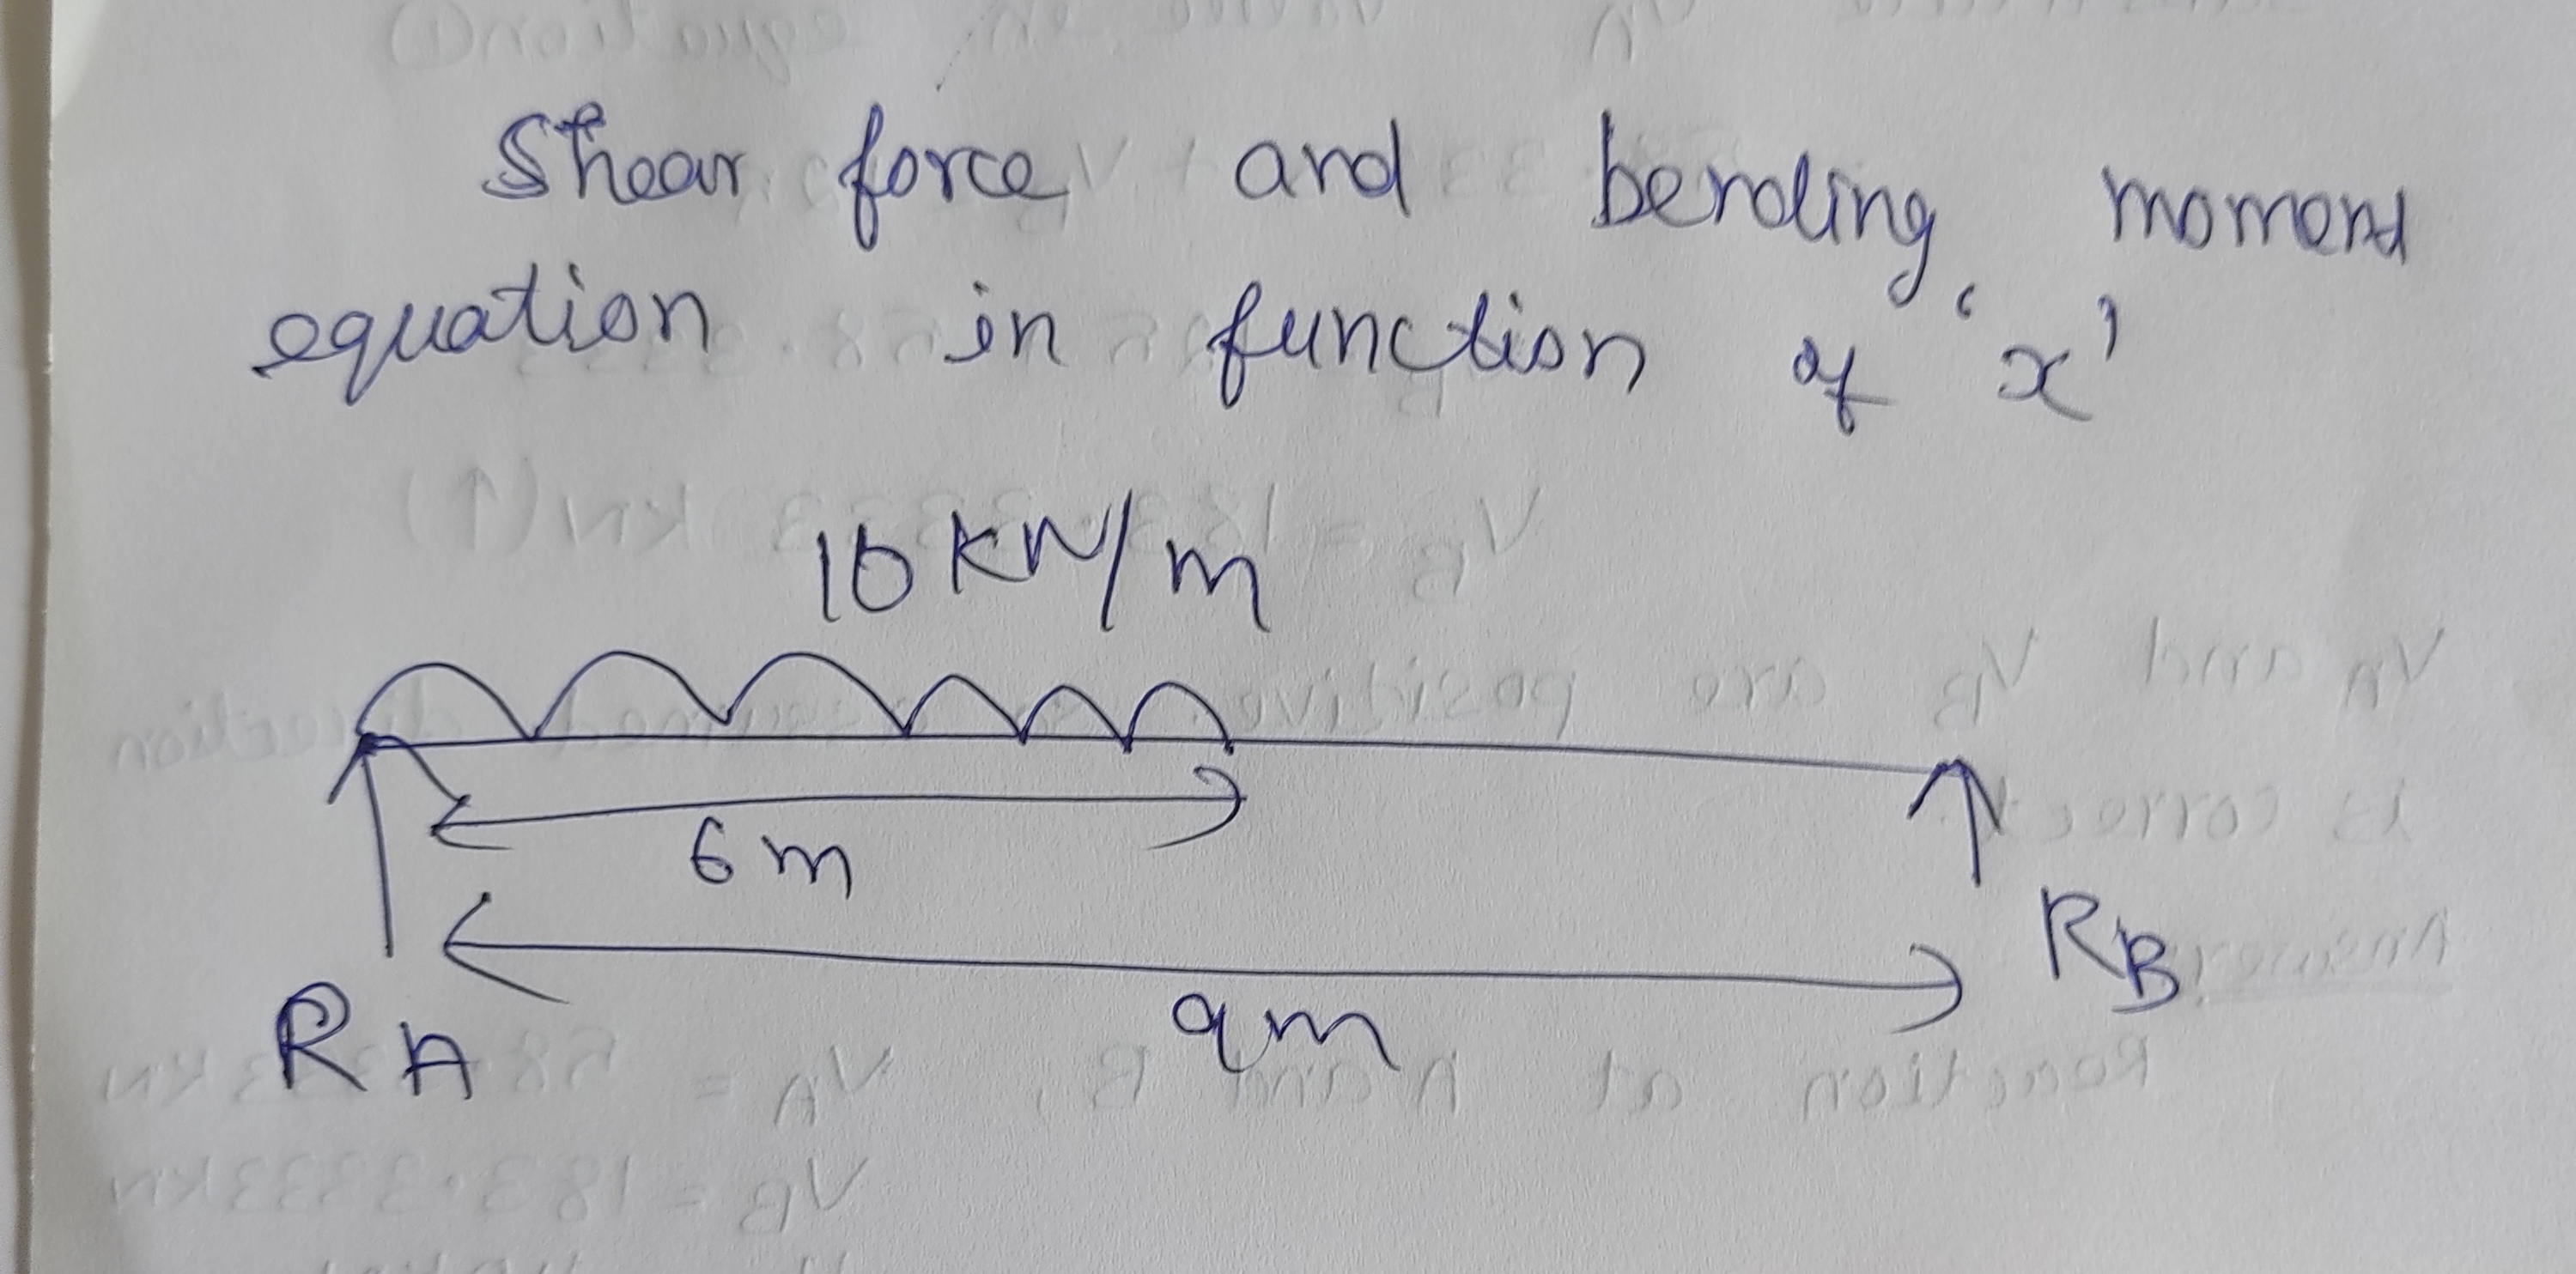 Shear force and bending moment
equation in function of 'x'
10 KN/m
6 m
9m
RA
RB